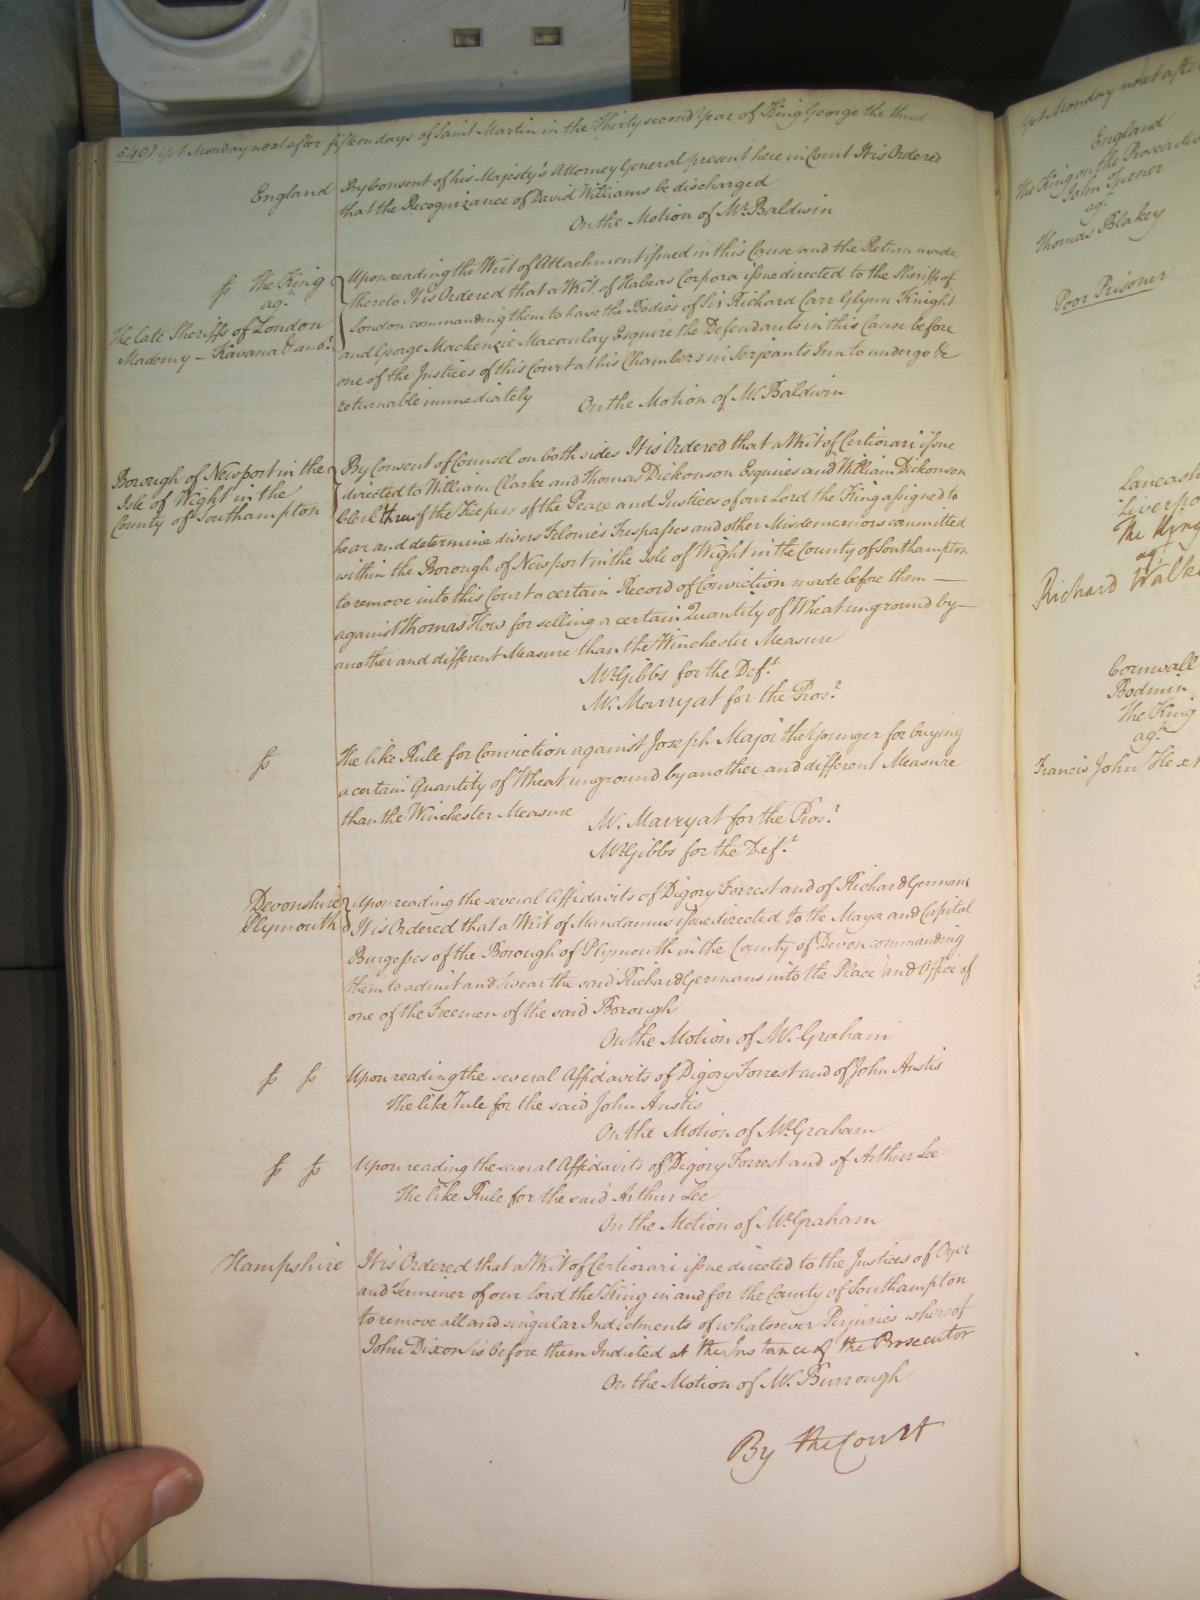 540) Yet Monday next after fifteen days of Saint Martin in the Thirty second Year of King George the third
England
By Consent of his Majesty's Attorney General present here in Court It is Ordered
that the Recognizance of David Williams be discharged
On the Motion of Mr. Baldwin
The King
agt.
The late Sheriffs of London
Madomy – Kavana & anor.
Upon reading the Writ of Attachment issued in this Cause and the Return made
thereto It is Ordered that a Writ of Habeas Corpora issue directed to the Sheriffs of
London commanding them to have the Bodies of Sir Richard Carr Glynn Knight
and George Mackenzie Macaulay Esquire the Defendants in this Cause before
one of the Justices of this Court at his Chambers in Serjeants Inn to undergo &c
returnable immediately
On the Motion of Mr. Baldwin
Borough of Newport in the
Isle of Wight in the
County of Southampton
By Consent of Counsel on both sides It is Ordered that a Writ of Certiorari issue
directed to William Clarke and Thomas Dickonson Esquires and William Dickonson
Clerk three of the Keepers of the Peace and Justices of our Lord the King assigned to
hear and determine divers Felonies Trespasses and other Misdemeanors committed
within the Borough of Newport in the Isle of Wight in the County of Southampton
to remove into this Court a certain Record of Conviction made before them —
against Thomas How for selling a certain Quantity of Wheat unground by —
another and different Measure than the Winchester Measure
Mr. Gibbs for the Deft.
Mr. Marryat for the Prosr.
The like Rule for Conviction against Joseph Major the Younger for buying
a certain Quantity of Wheat unground by another and different Measure
than the Winchester Measure
Mr. Marryat for the Prosr.
Mr. Gibbs for the Deft.
Devonshire
Plymouth
Upon reading the several Affidavits of Digory Forrest and of Richard Germans
It is Ordered that a Writ of Mandamus issue directed to the Mayor and Capital
Burgesses of the Borough of Plymouth in the County of Devon commanding
them to admit and swear the said Richard Germans into the Place and Office of
one of the Freemen of the said Borough
On the Motion of Mr. Graham
Upon reading the several Affidavits of Digory Forrest and of John Austis
The like Rule for the said John Austis
On the Motion of Mr. Graham
Upon reading the several Affidavits of Digory Forrest and of Arthur Lee
The like Rule for the said Arthur Lee
On the Motion of Mr. Graham
Hampshire
It is Ordered that a Writ of Certiorari issue directed to the Justices of Oyer
and Terminer of our Lord the King in and for the County of Southampton
to remove all and singular Indictments of whatsoever Perjuries whereof
John Dixon is before them Indicted at the Instance of the Prosecutor
On the Motion of Mr. Burrough
By the Court
Yet Monday next after
England
The King on the Prosecution
John Turner
agt.
Thomas Blakey
Poor Prisoner
Lancash
Liverpo
The King
agt.
Richard Walke
Cornwall
Bodmin
The King
agt.
Francis John Hext